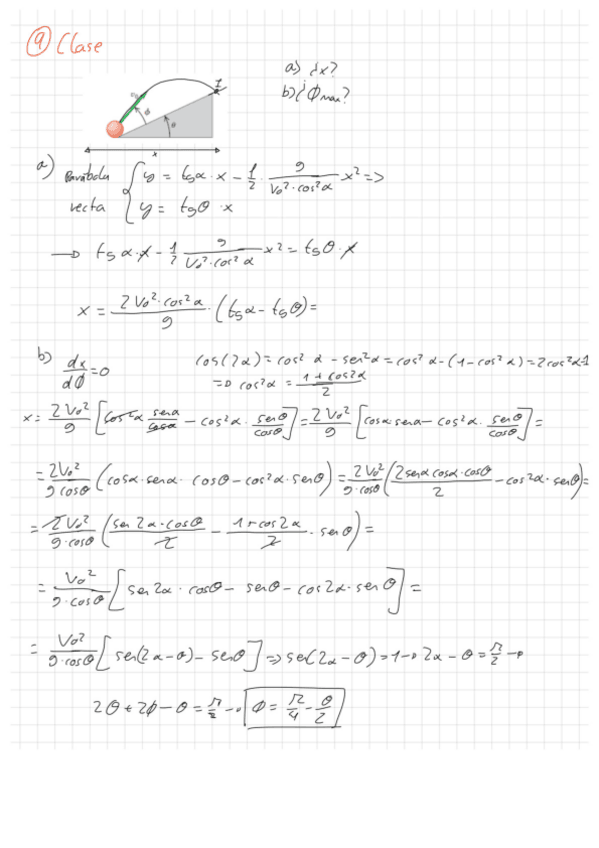 9 Clase
a) ¿x?
b) ¿ϕ max?
v₀
ϕ
θ
x
a) Parábola { y = tgα · x − 1/2 · g/(V₀² · cos²α) x² =>
recta { y = tgθ · x
→ tgα · x − 1/2 g/(V₀² · cos²α) x² = tgθ · x
x = (2V₀² · cos²α)/g · (tgα − tgθ) =
b) dx/dϕ = 0
cos(2α) = cos²α − sen²α = cos²α − (1 − cos²α) = 2cos²α − 1
=> cos²α = (1 + cos2α)/2
x = 2V₀²/g [cos²α senα/cosα − cos²α · senθ/cosθ] = 2V₀²/g [cosα senα − cos²α · senθ/cosθ] =
= 2V₀²/(g cosθ) (cosα · senα · cosθ − cos²α · senθ) = 2V₀²/(g · cosθ) (2senα cosα · cosθ/2 − cos²α · senθ) =
= 2V₀²/(g · cosθ) (sen2α · cosθ/2 − (1 + cos2α)/2 · senθ) =
= V₀²/(g · cosθ) [sen2α · cosθ − senθ − cos2α · senθ] =
= V₀²/(g · cosθ) [sen(2α − θ) − senθ] => sen(2α − θ) = 1 → 2α − θ = π/2 →
2θ + 2ϕ − θ = π/2 → ϕ = π/4 − θ/2